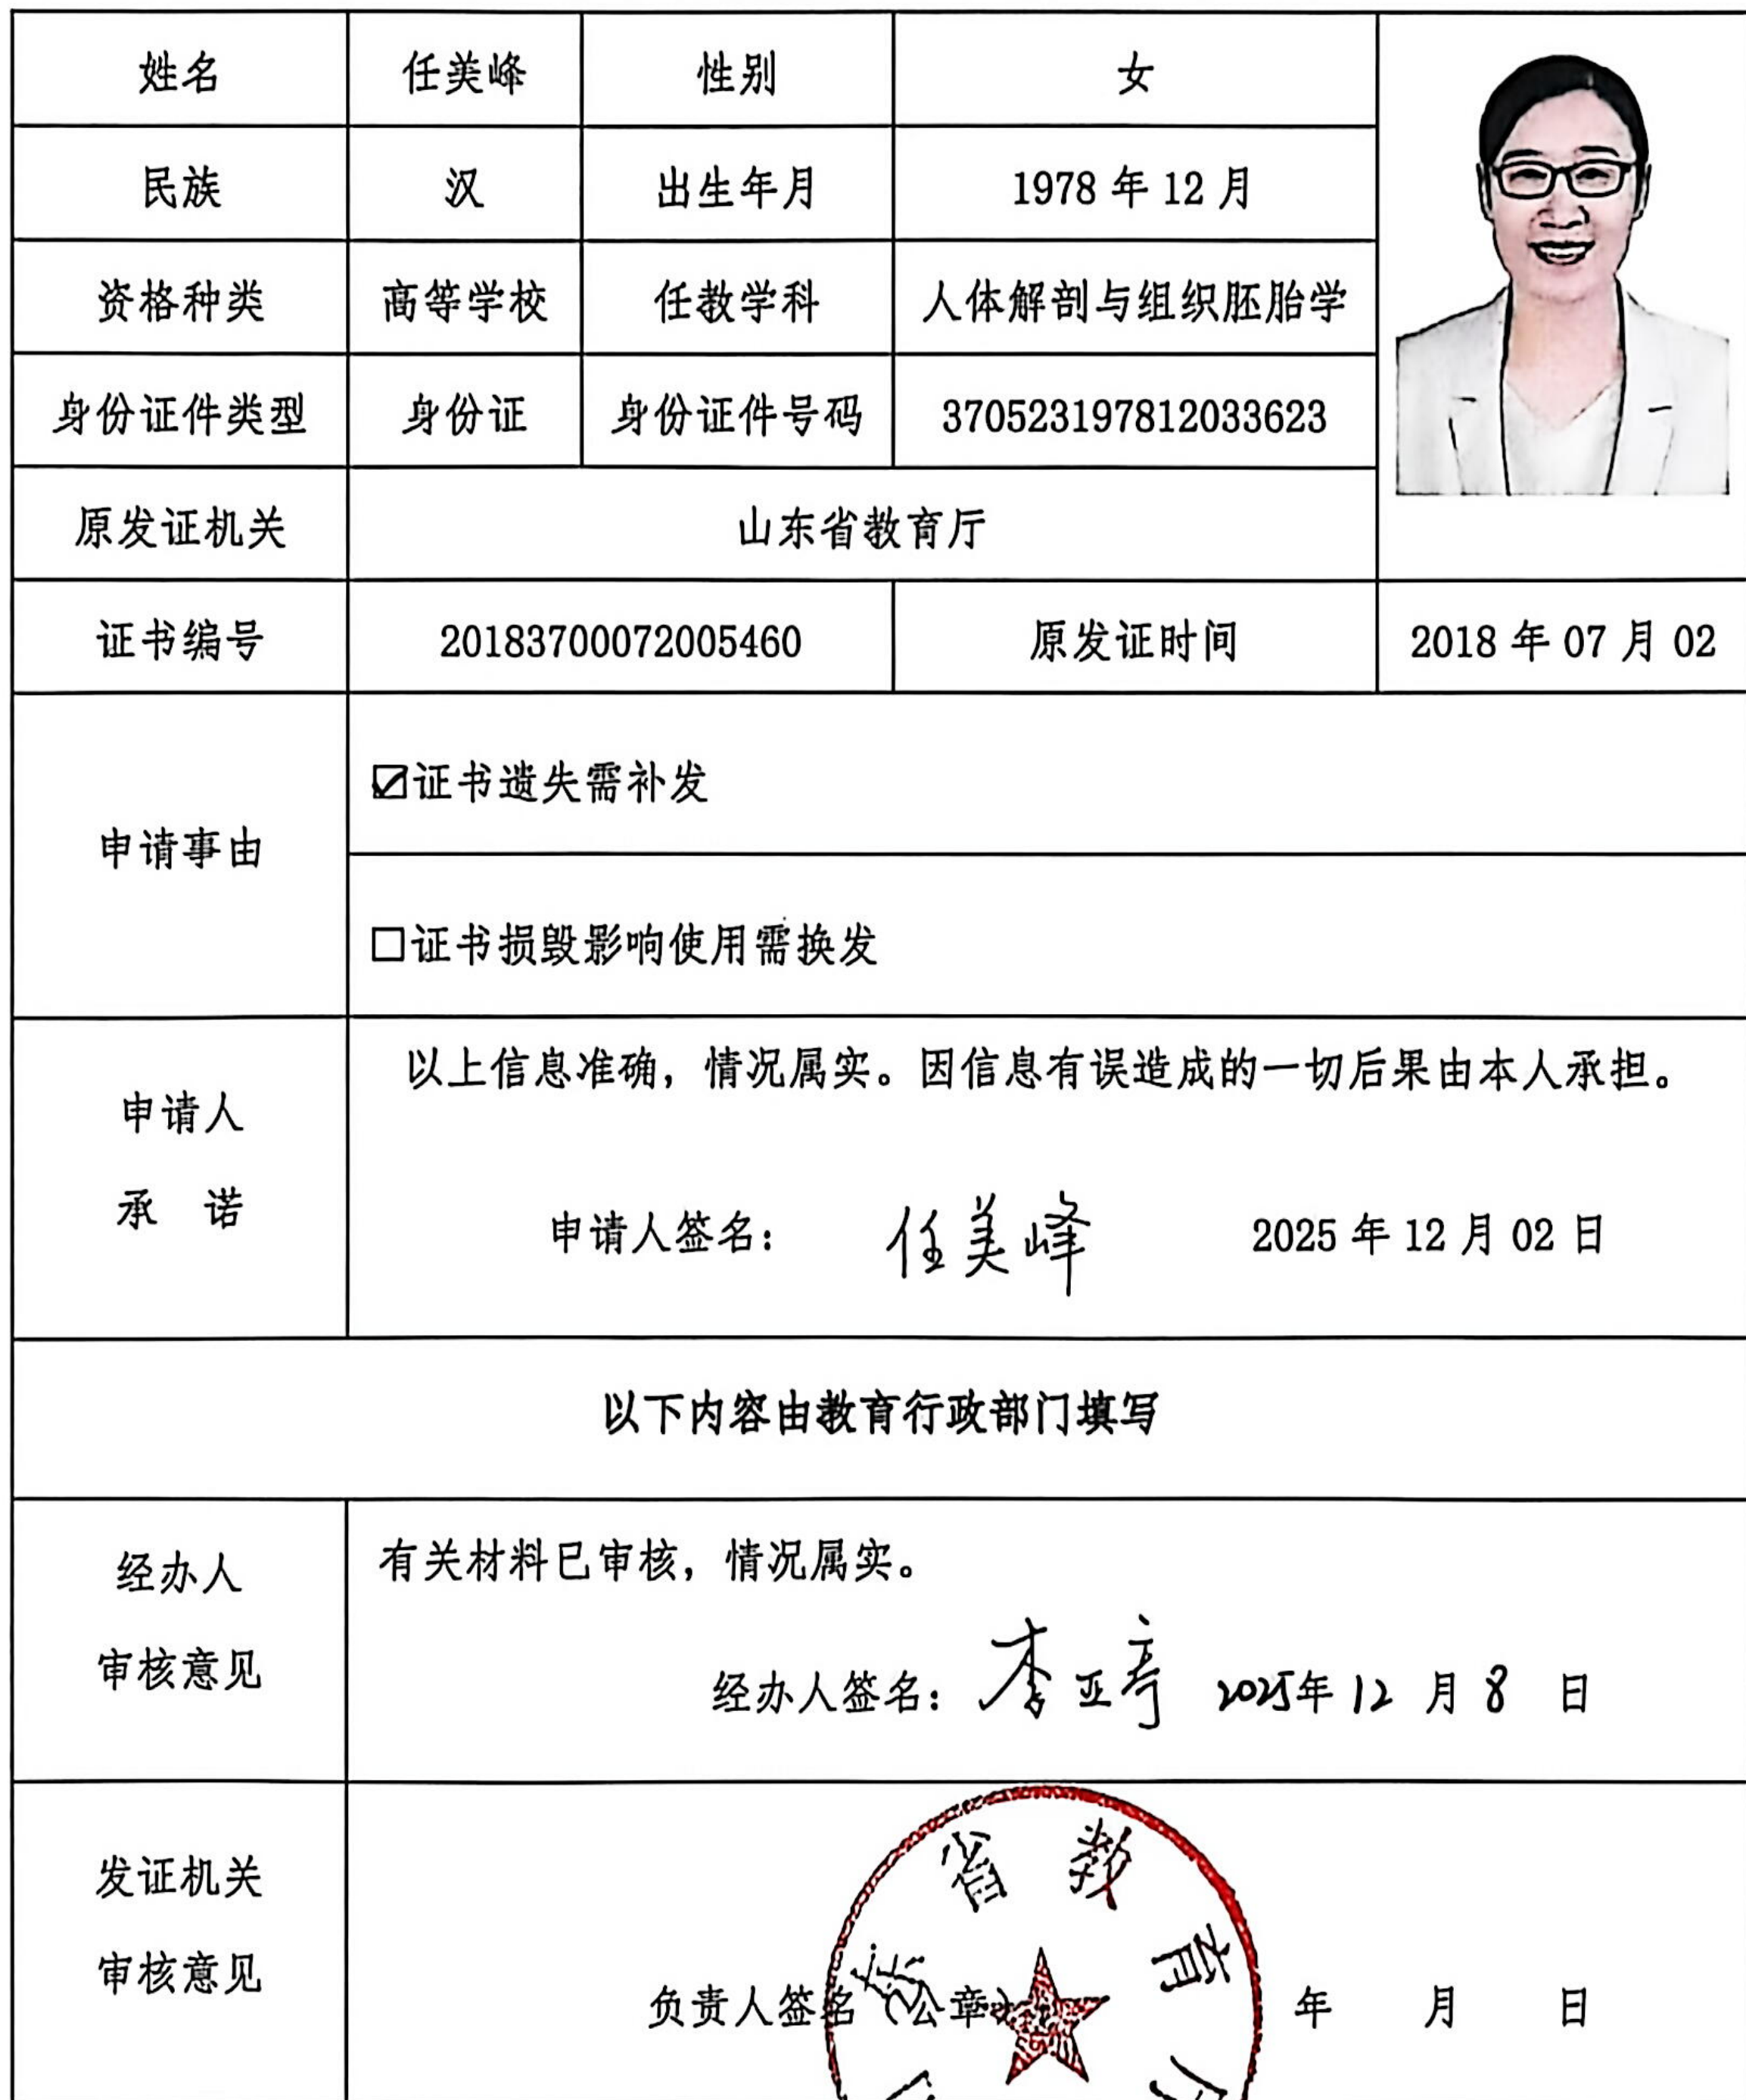 姓名 任美峰 性别 女
民族 汉 出生年月 1978 年 12 月
资格种类 高等学校 任教学科 人体解剖与组织胚胎学
身份证件类型 身份证 身份证件号码 370523197812033623
原发证机关 山东省教育厅
证书编号 20183700072005460 原发证时间 2018 年 07 月 02
申请事由
☑证书遗失需补发
□证书损毁影响使用需换发
申请人
承 诺
以上信息准确，情况属实。因信息有误造成的一切后果由本人承担。
申请人签名： 任美峰 2025 年 12 月 02 日
以下内容由教育行政部门填写
经办人
审核意见
有关材料已审核，情况属实。
经办人签名： 李亚 2025年 12 月 8 日
发证机关
审核意见
东省教育厅
负责人签名（公章） 年 月 日